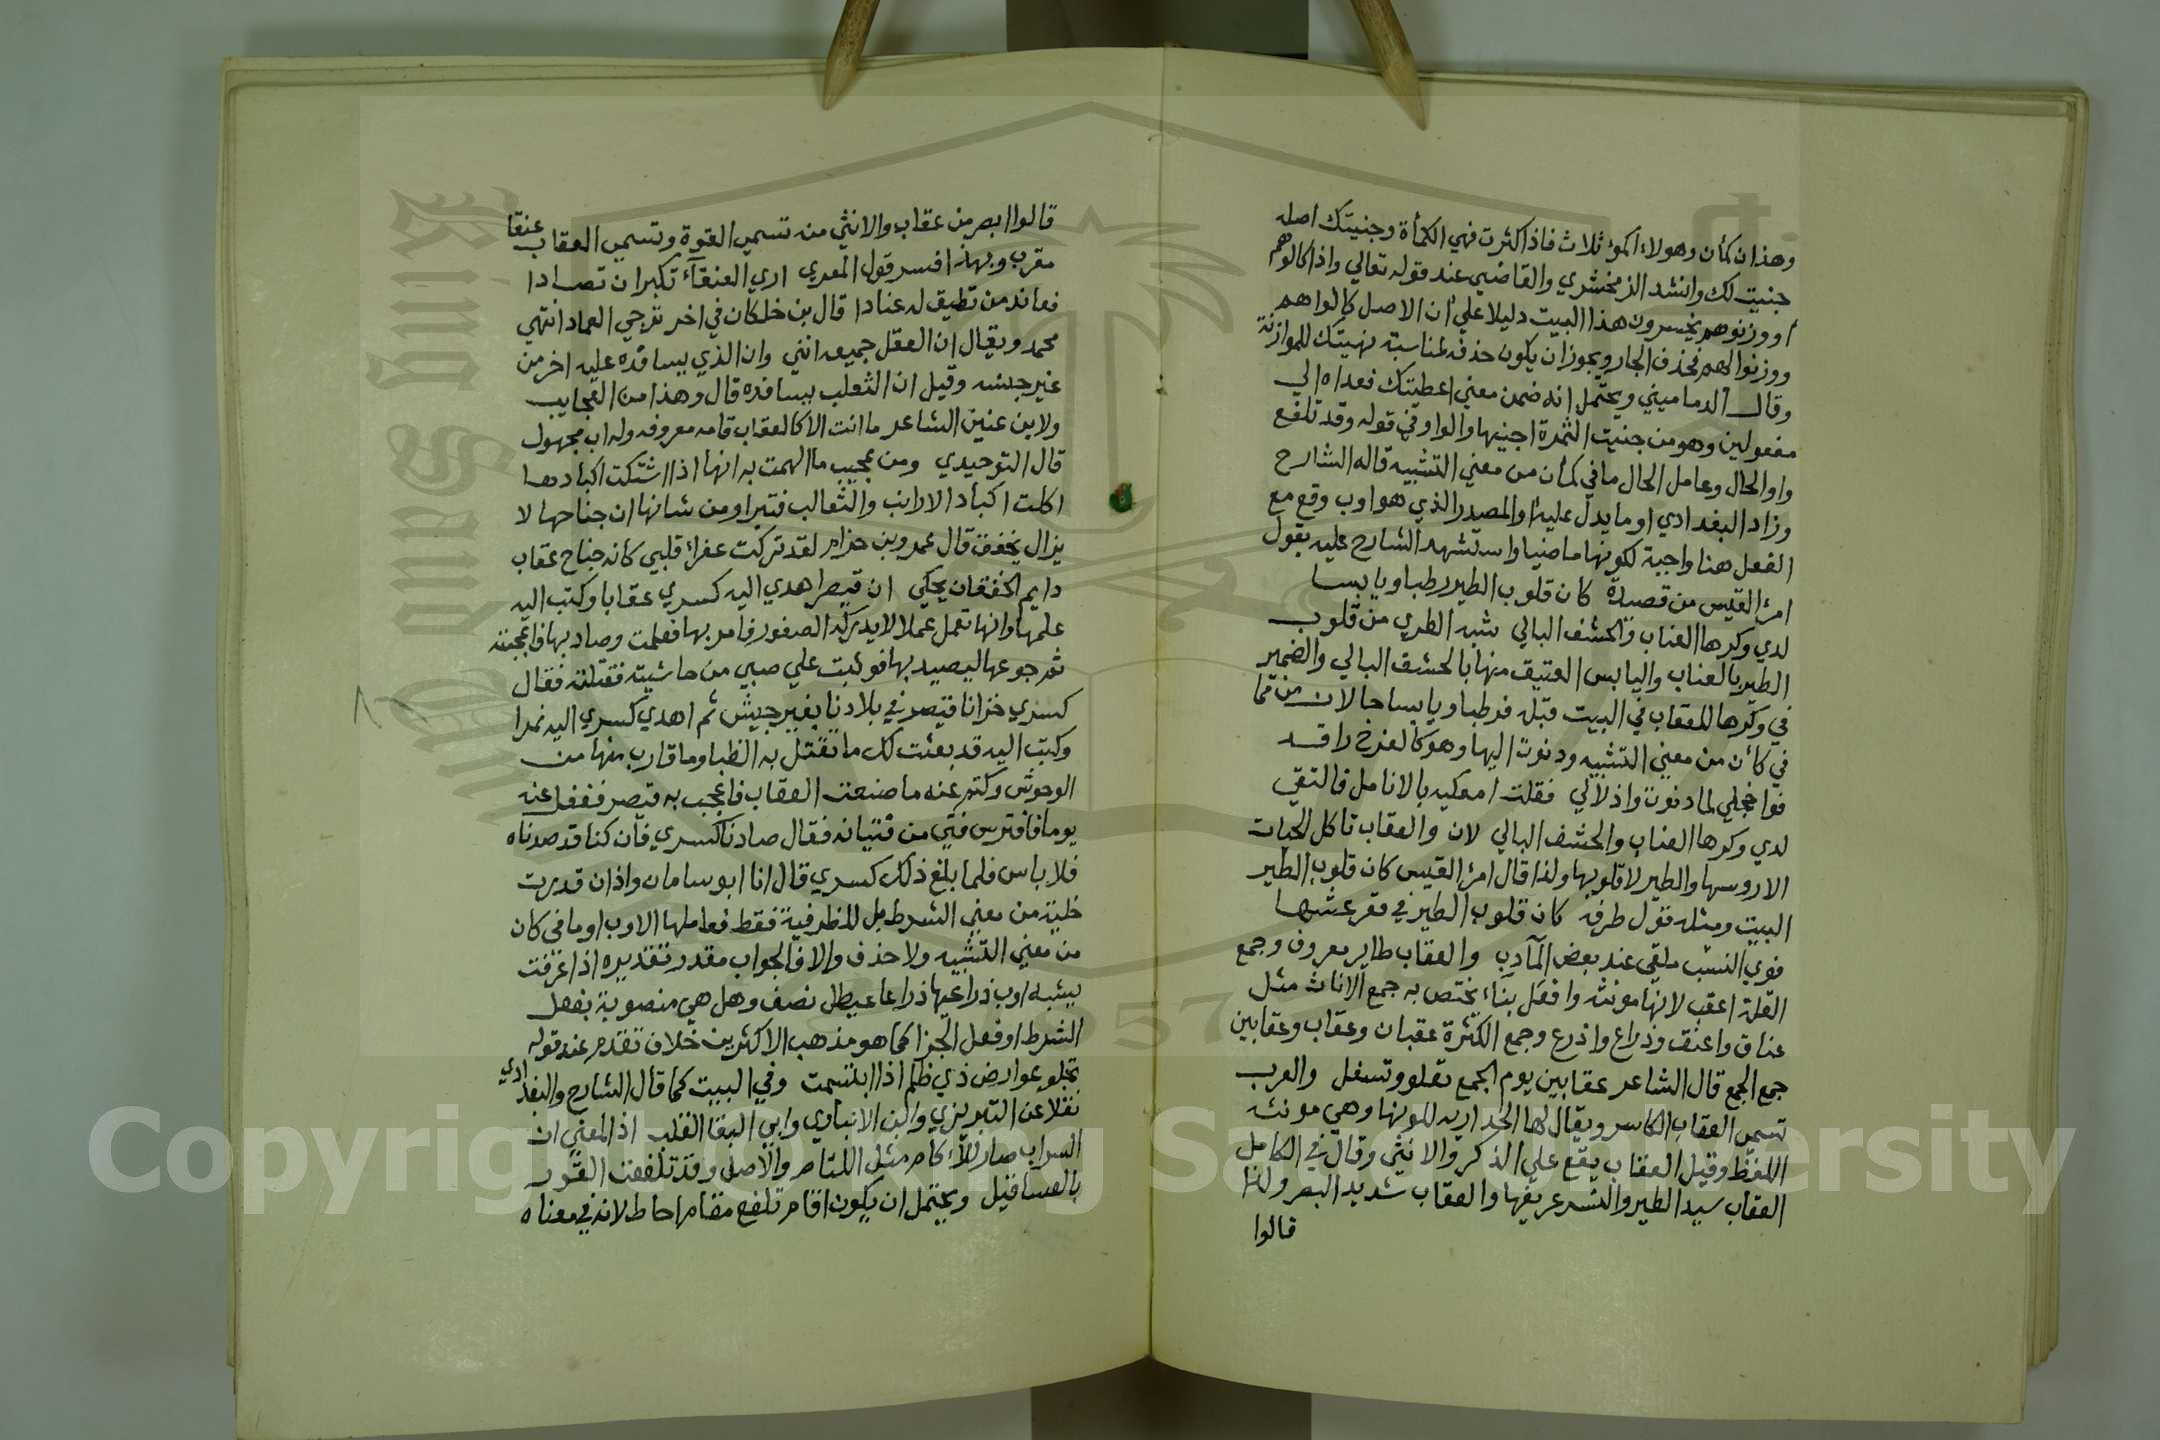 وهذان كمأن وهولاء اكمؤ ثلاث فاذا كثرت فهي الكمأة وجنيتك اصله
جنيت لك وانشد الزمخشري والقاضي عند قوله تعالي واذا كالوهم
او وزنوهم يخسرون هذا البيت دليلا علي ان الاصل كالوا هم
ووزنوا لهم فحذف الجار ويجوز ان يكون حذفه لمناسبة نهيتك للموازنة
وقال الدماميني ويحتمل انه ضمن معني اعطيتك فعداه الي
مفعولين وهو من جنيت الثمرة اجنيها والواو في قوله وقد تلفع
واو الحال وعامل الحال ما في كأن من معني التشبيه قاله الشارح
وزاد البغدادي او ما يدل عليه او المصدر الذي هو اوب وقع مع
الفعل هنا واجبة لكونها ماضيا واستشهد الشارح عليه بقول
امرئ القيس من قصيدة كان قلوب الطير رطبا ويابسا
لدي وكرها العناب والحشف البالي شبه الطري من قلوب
الطير بالعناب واليابس العتيق منها بالحشف البالي والضمير
في وكرها للعقاب في البيت قبله فرطبا ويابسا حالان من قما
في كأن من معني التشبيه ودنوت اليها وهو كالفرخ راقد
فواخجلي لما دنوت واذلالي فقلت امعكيه بالانامل فالتقي
لدي وكرها العناب والحشف البالي لان والعقاب تاكل الحيات
الا روسها والطير لا قلوبها ولذا قال امرئ القيس كان قلوب الطير
البيت ومثله قول طرفه كان قلوب الطير في قعر عشها
نوي القسب ملقي عند بعض المآدب والعقاب طاير معروف وجمع
القلة اعقب لانها مونثه وافعل بناء يختص به جمع الاناث مثل
عناق واعنق وذراع واذرع وجمع الكثرة عقبان وعقاب وعقابين
جمع الجمع قال الشاعر عقابين يوم الجمع تعلو وتسفل والعرب
تسمي العقاب الكاسر ويقال لها الخداريه للونها وهي مونثه
اللفظ وقيل العقاب يقع علي الذكر والانثي وقال في الكامل
العقاب سيد الطير والنسر عريفها والعقاب شديد البصر ولذا
قالوا
قالوا ابصر من عقاب والانثي منه تسمي القوة وتسمي العقاب عنقا
مغرب وبهذا فسر قول المعري اري العنقآء تكبر ان تصادا
فعاند من تطيق له عنادا قال بن خلكان في اخر ترجمي العماد انتهي
محمد ويقال ان العقل جميعه انثي وان الذي يسافده عليه اخر من
غير جنسه وقيل ان الثعلب يسافده قال وهذا من العجايب
ولابن عنين الشاعر ما انت الا كالعقاب فامه معروفه وله اب مجهول
قال التوحيدي ومن عجيب ما الهمت به انها اذا اشتكت اكبادها
اكلت اكباد الارانب والثعالب فتبرا ومن شانها ان جناحها لا
يزال يخفق قال عمرو بن حزام لقد تركت عفراء قلبي كانه جناح عقاب
دايم الخفقان يحكي ان قيصر اهدي اليه كسري عقابا وكتب اليه
علمها وانها تعمل عملا لا يدركه الصقور فامر بها فعلمت وصاد بها فاعجبته
ثم جوعها ليصيد بها فوثبت علي صبي من حاشيته فقتلته فقال
كسري خزانا قيصر في بلادنا بغير جيش ثم اهدي كسري اليه نمرا
وكتب اليه قد بعثت لك ما تقتل به الظبا وما قارب منها من
الوحوش وكتم عنه ما صنعت العقاب فاعجب به قيصر فغفل عنه
يوما فافترس فتي من فتيانه فقال صادنا كسري فان كنا قد صدناه
فلا باس فلما بلغ ذلك كسري قال انا ابو ساسان واذا ن قدرت
خلية من معني الشرط بل للظرفية فقط فعاملها الاوب او ما في كان
من معني التشبيه ولا حذف والا فالجواب مقدر تقديره اذا عرقت
يشبه اوب ذراعيها ذراعا عيطل نصف وهل هي منصوبة بفعل
الشرط او فعل الجزا كما هو مذهب الاكثرين خلاف تقدم عند قوله
تجلو عوارض ذي ظلم اذا ابتسمت وفي البيت كما قال الشارح والبغدادي
نقلا عن التبريزي وابن الانباري وابي البقا القلب اذ المعني ان
السراب صار للاكام مثل اللثام والاصل وقد تلفعت القور
بالعساقيل ويحتمل ان يكون اقام تلفع مقام احاط لانه في معناه
Copyright © King Saud University